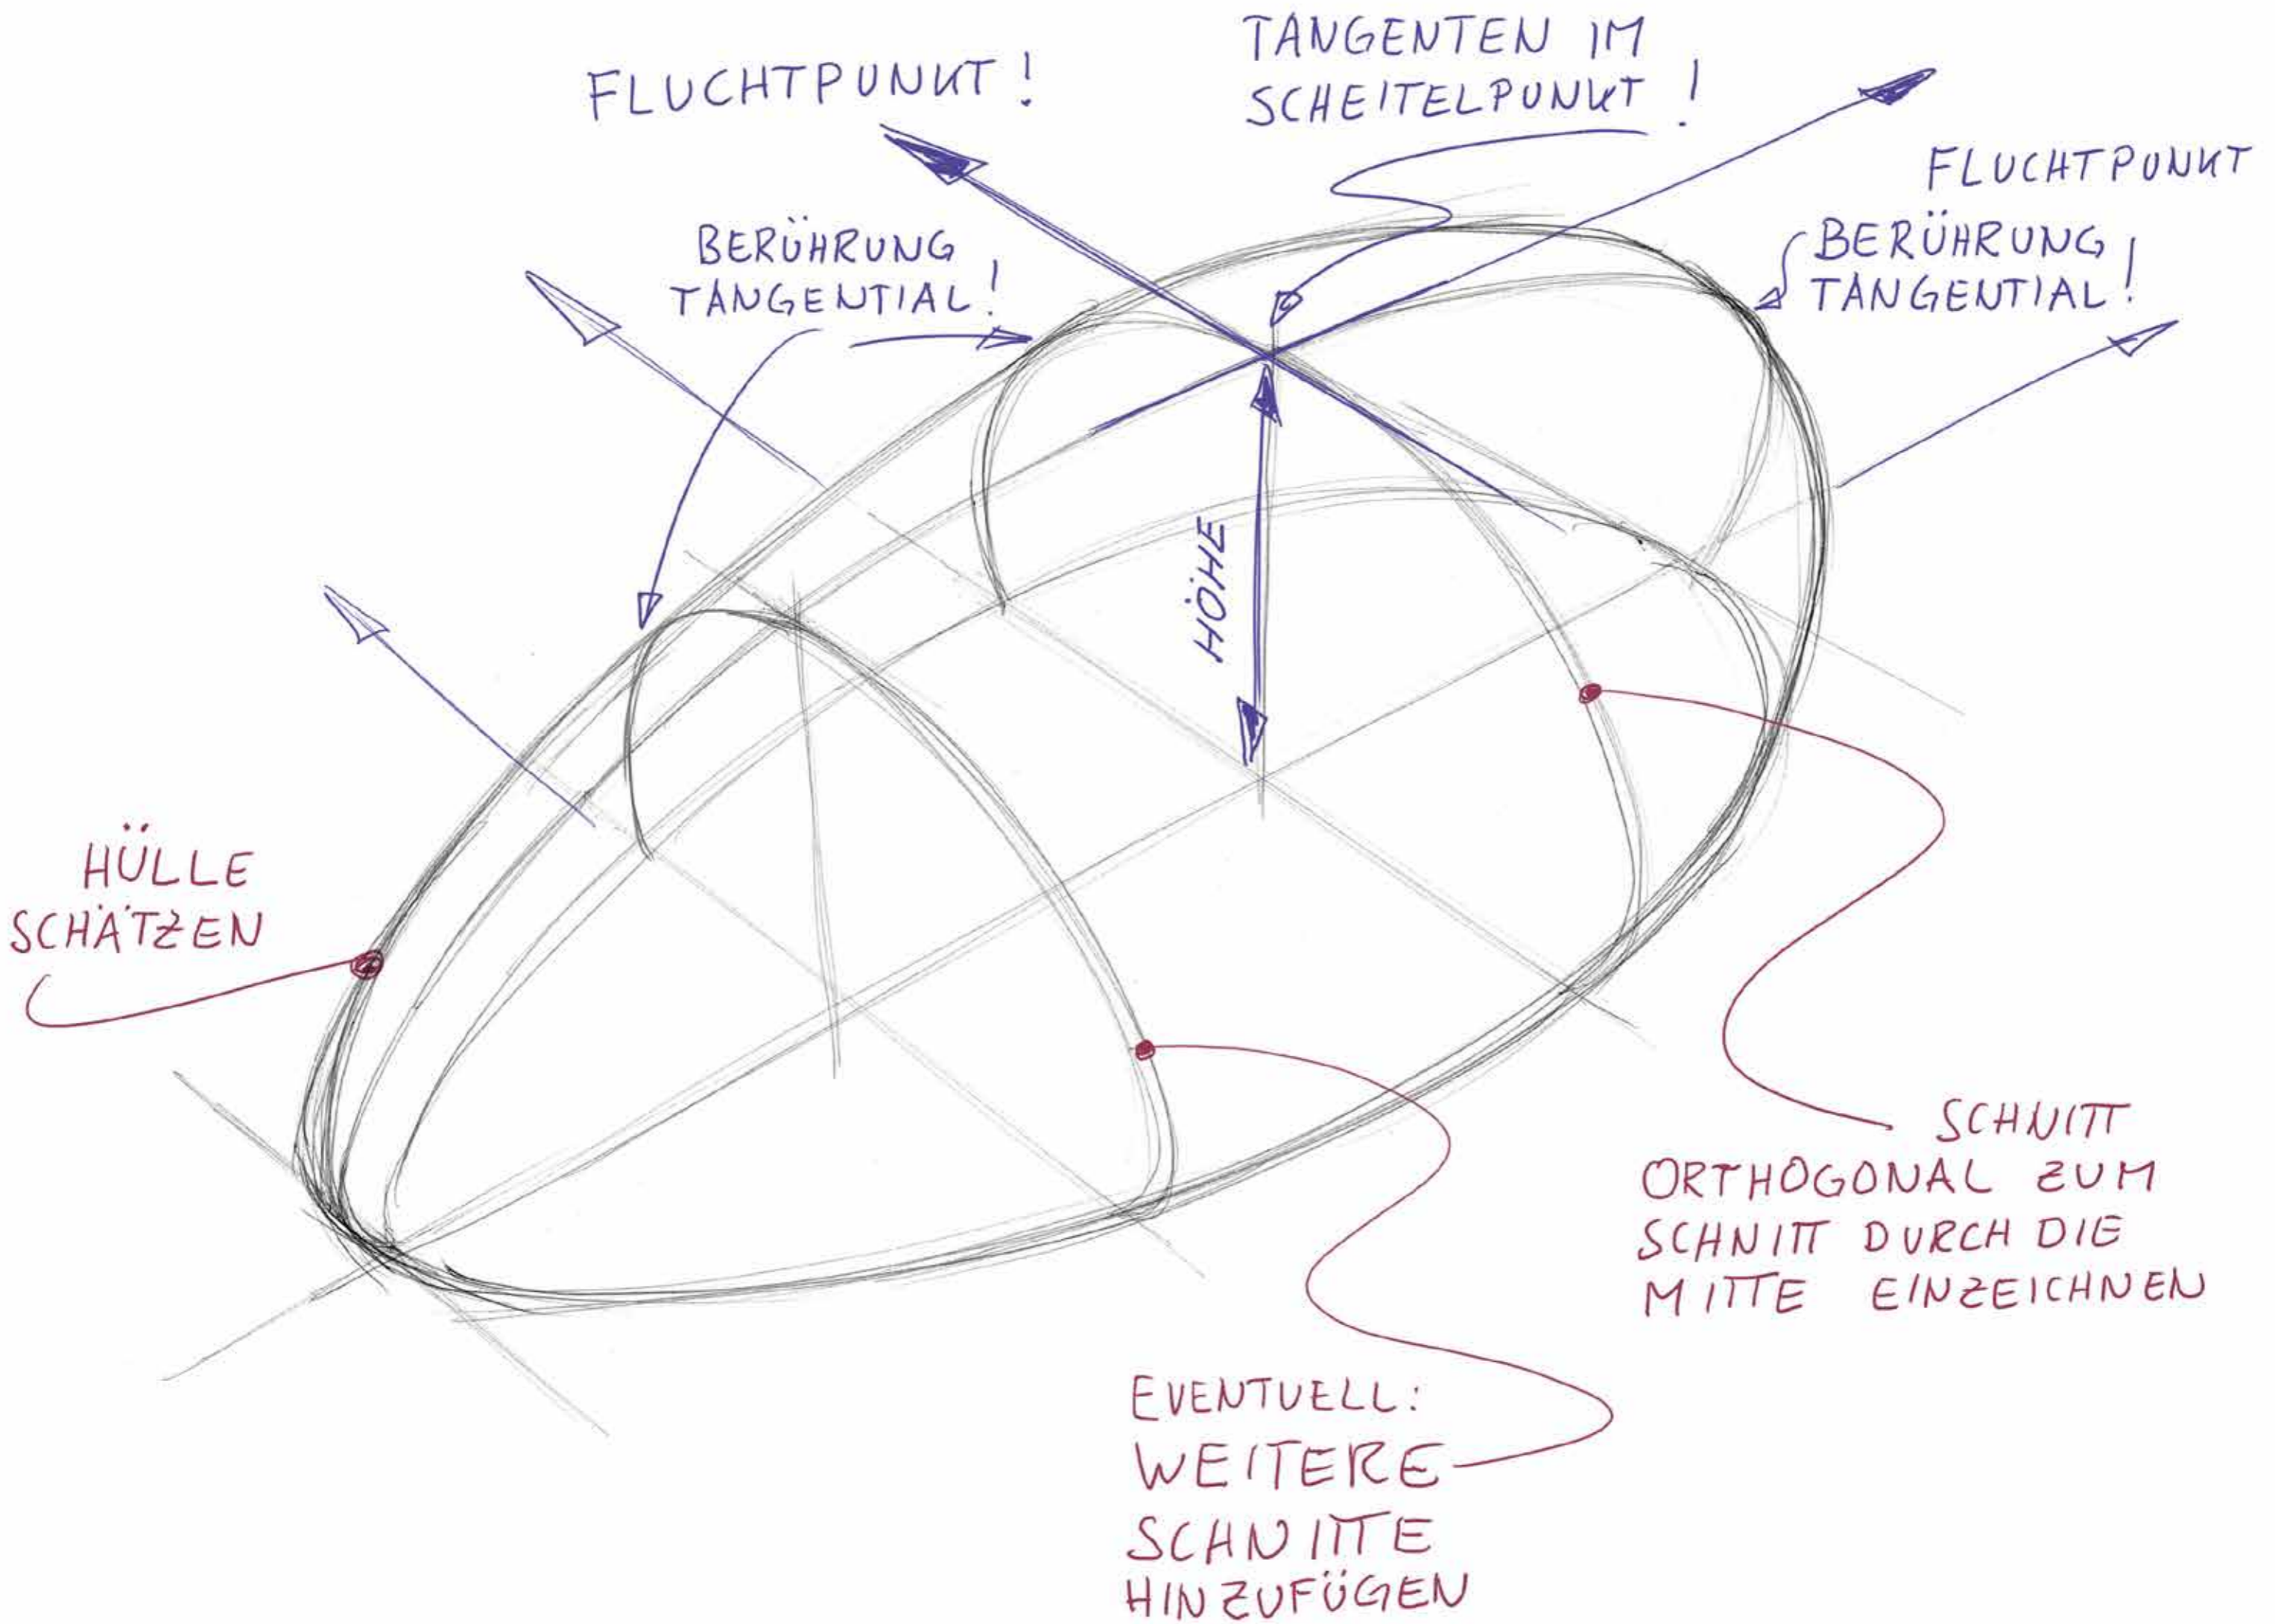 FLUCHTPUNKT!
TANGENTEN IM
SCHEITELPUNKT!
FLUCHTPUNKT
BERÜHRUNG
TANGENTIAL!
BERÜHRUNG
TANGENTIAL!
HÖHE
HÜLLE
SCHÄTZEN
SCHNITT
ORTHOGONAL ZUM
SCHNITT DURCH DIE
MITTE EINZEICHNEN
EVENTUELL:
WEITERE
SCHNITTE
HINZUFÜGEN